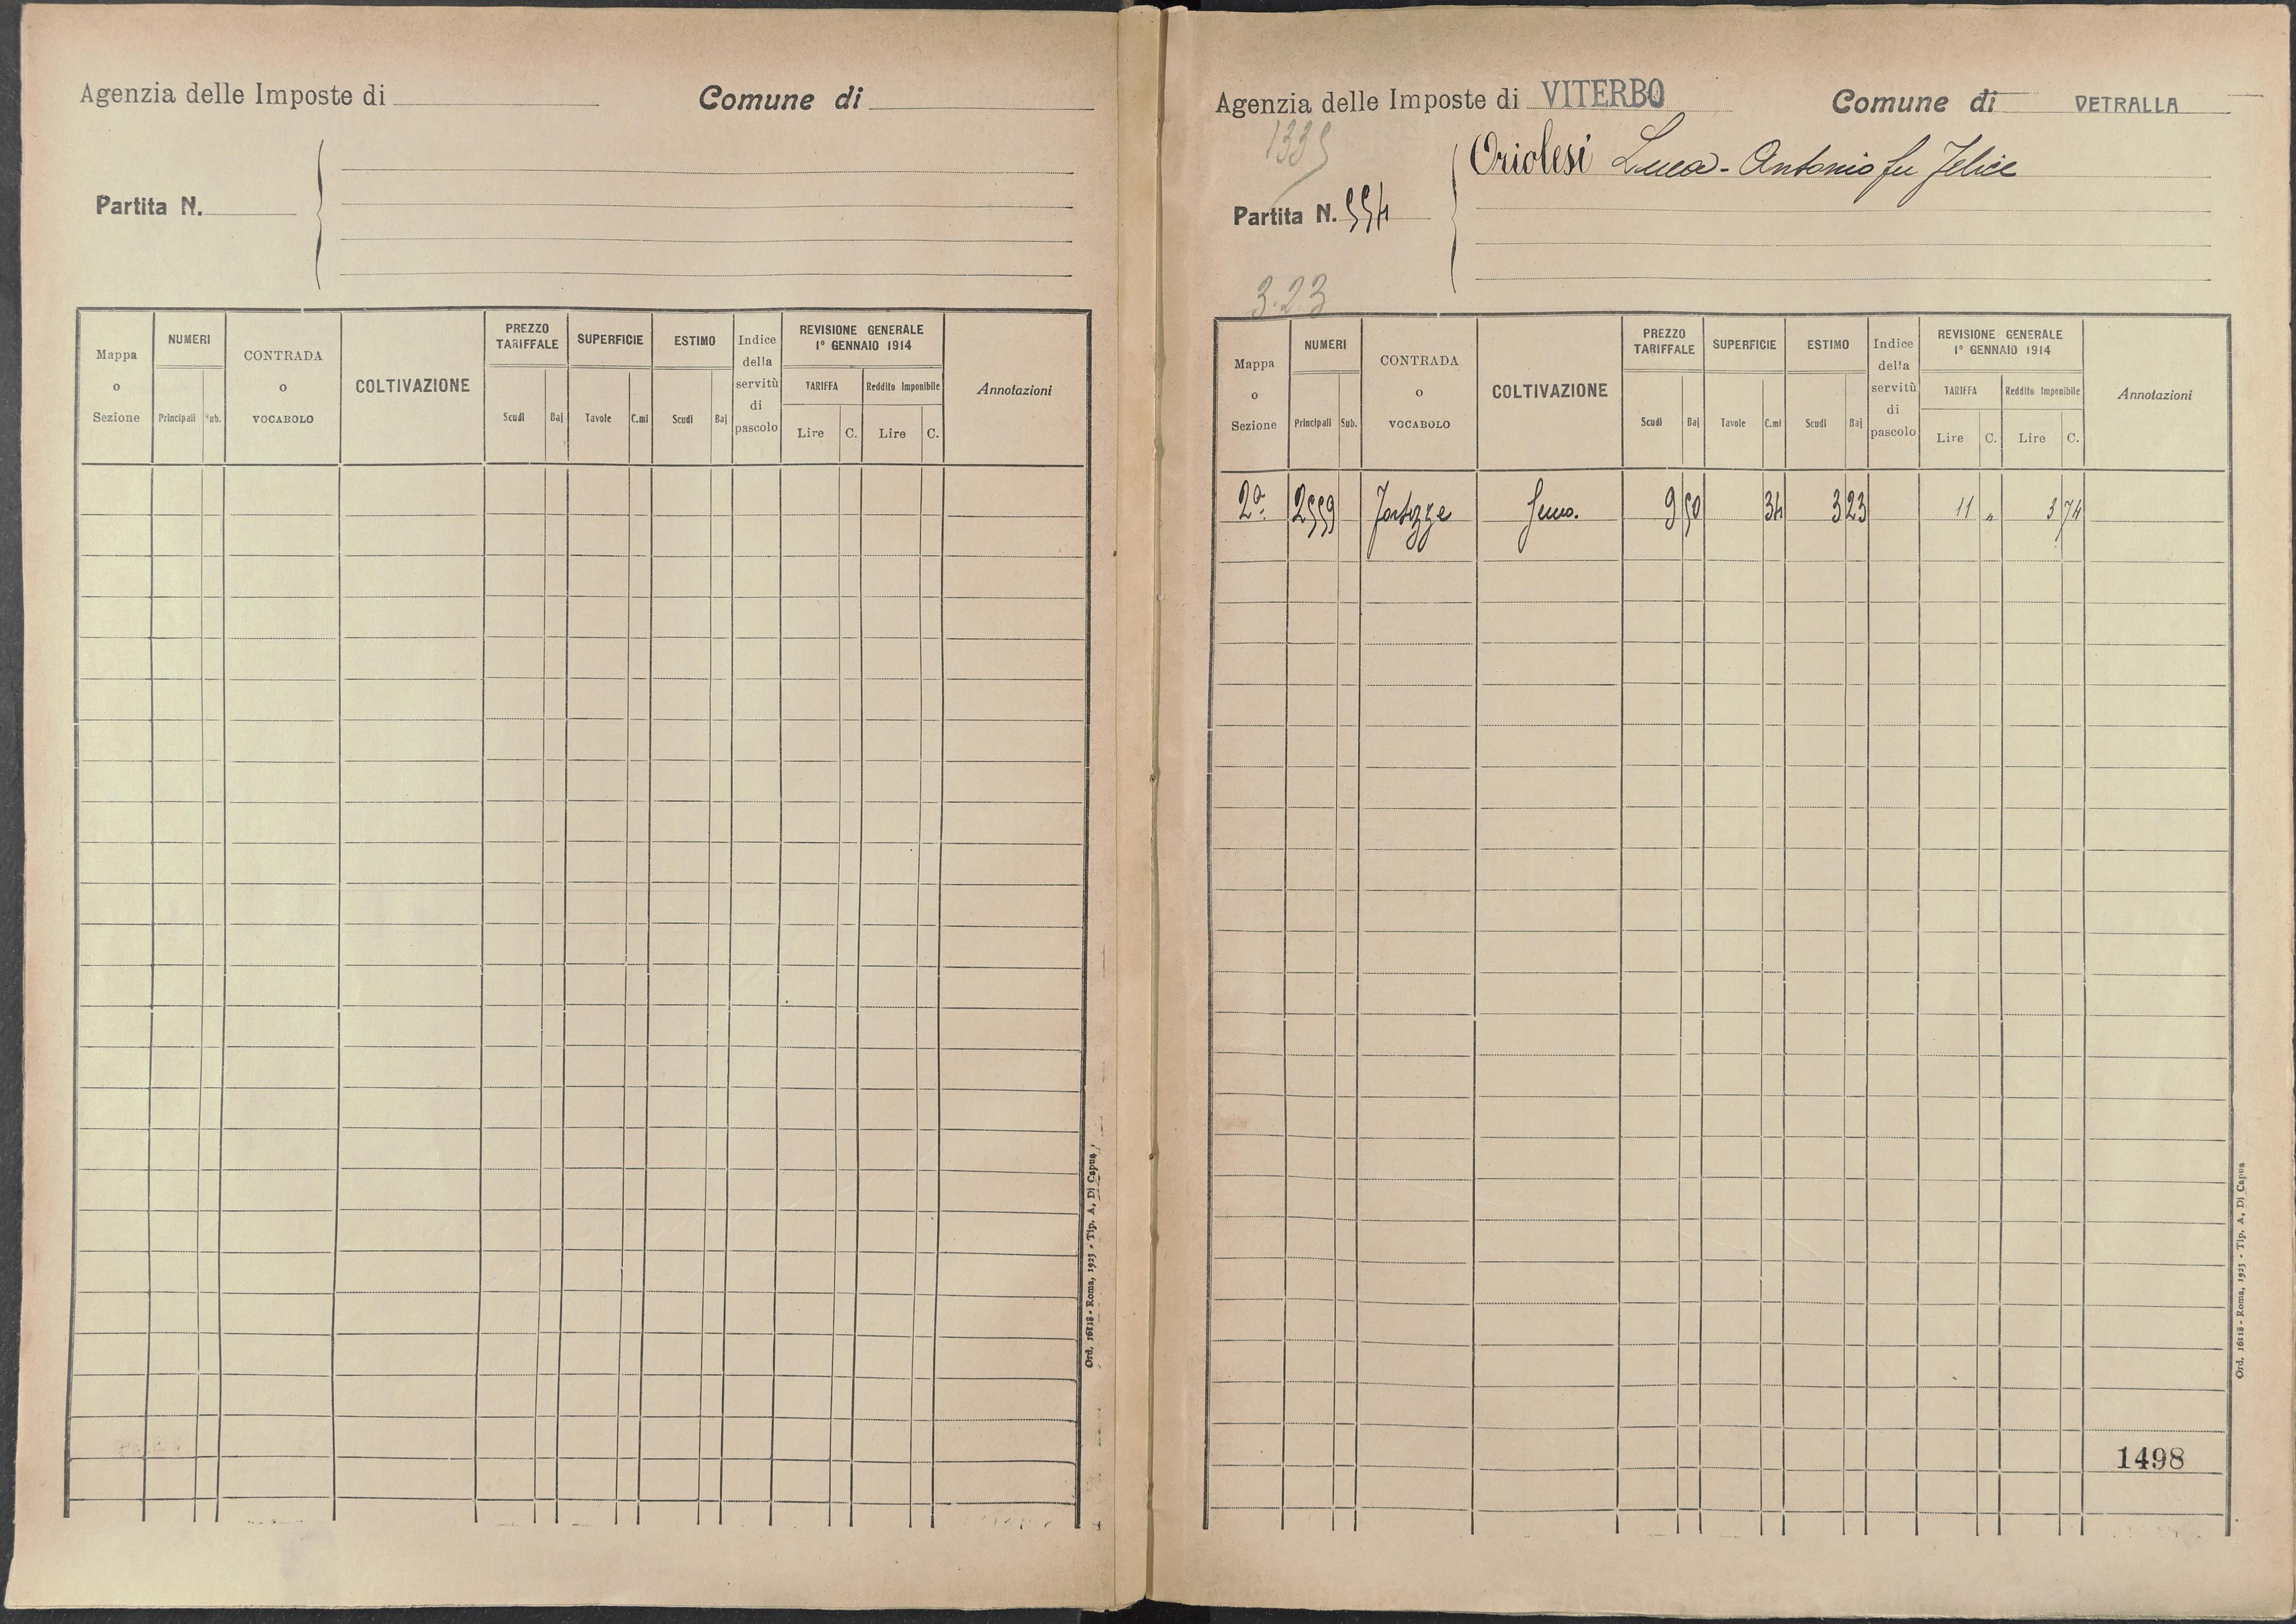 Agenzia delle Imposte di
Comune di
Partita N.
Mappa o Sezione
NUMERI
Principali
Sub.
CONTRADA o VOCABOLO
COLTIVAZIONE
PREZZO TARIFFALE
Scudi
Baj
SUPERFICIE
Tavole
C.mi
ESTIMO
Scudi
Baj
Indice della servitù di pascolo
REVISIONE GENERALE
1° GENNAIO 1914
TARIFFA
Reddito Imponibile
Lire
C.
Lire
C.
Annotazioni
Ord. 16118 - Roma, 1923 - Tip. A. Di Capua
Agenzia delle Imposte di VITERBO
Comune di VETRALLA
1335
Oriolesi Luca-Antonio fu Felice
Partita N. 554
3.23
Mappa o Sezione
NUMERI
Principali
Sub.
CONTRADA o VOCABOLO
COLTIVAZIONE
PREZZO TARIFFALE
Scudi
Baj
SUPERFICIE
Tavole
C.mi
ESTIMO
Scudi
Baj
Indice della servitù di pascolo
REVISIONE GENERALE
1° GENNAIO 1914
TARIFFA
Reddito Imponibile
Lire
C.
Lire
C.
Annotazioni
2a. 2559 9 50 34 3 23 11 " 3 74
1498
Ord. 16118 - Roma, 1923 - Tip. A. Di Capua